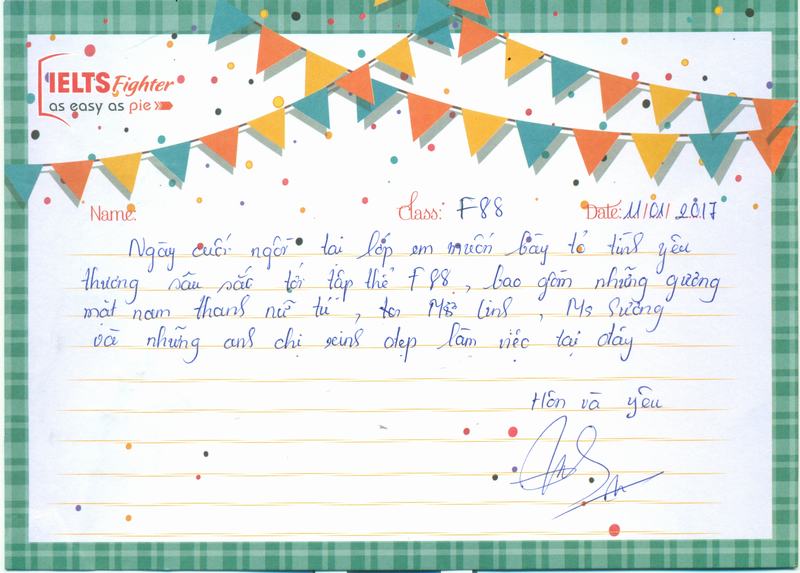 IELTS Fighter
as easy as pie
Name: Class: F88 Date: 11/01/2017
Ngày cuối ngồi tại lớp em muốn bày tỏ tình yêu
thương sâu sắc tới tập thể F88, bao gồm những gương
mặt nam thanh nữ tú, tới Ms Linh, Ms Sường
và những anh chị xinh đẹp làm việc tại đây
Hôn và yêu